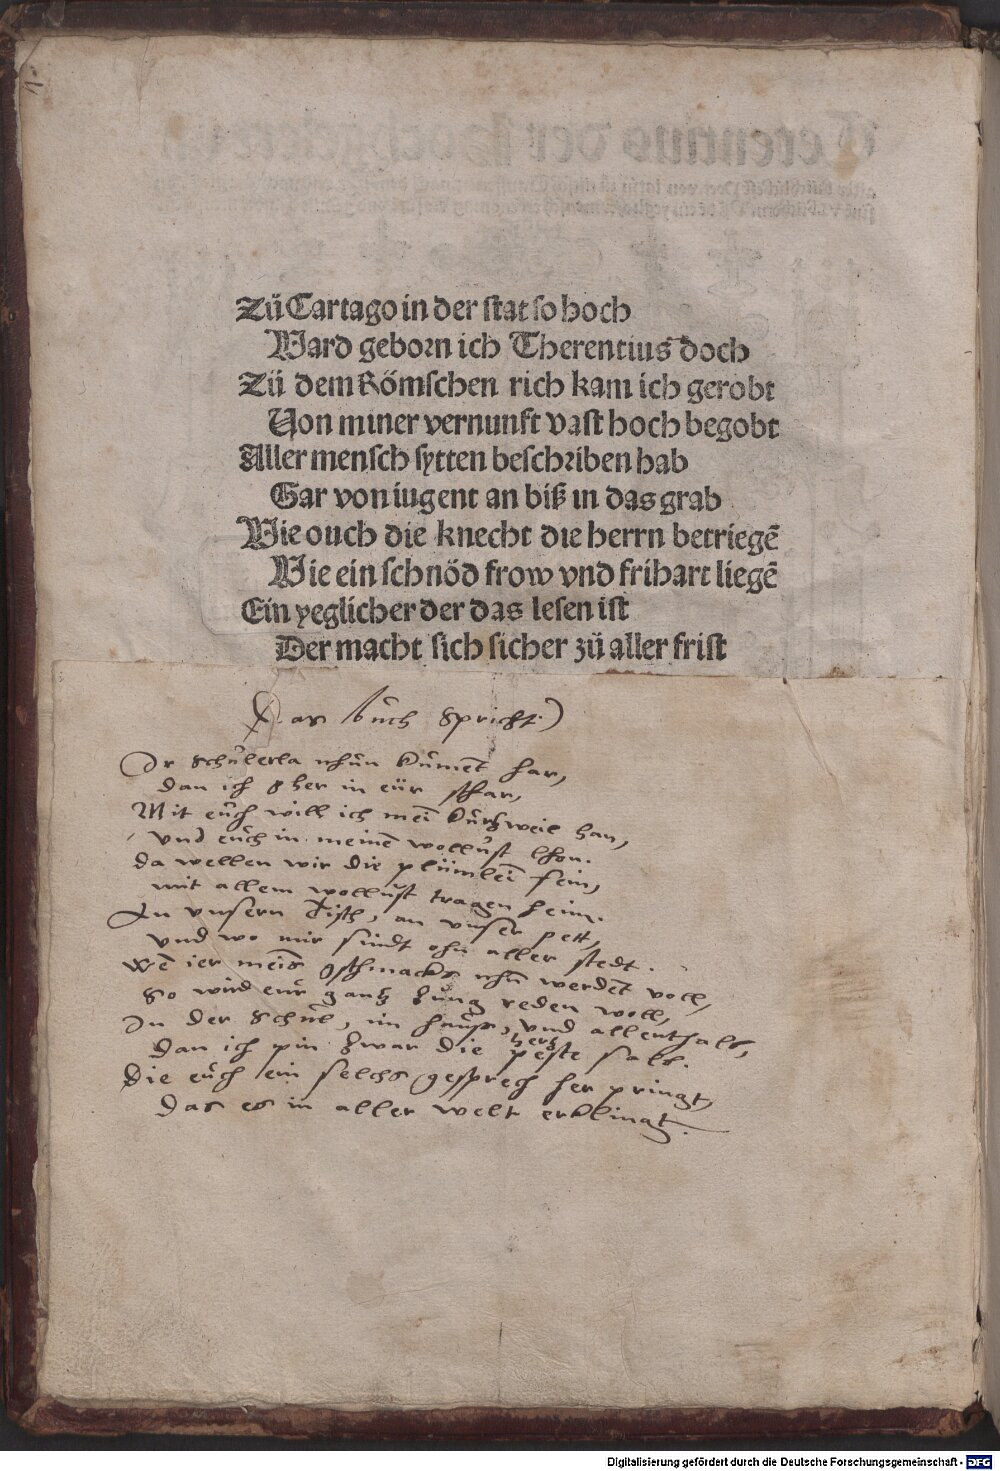 Zů Cartago in der stat so hoch
Ward geborn ich Therentius doch
Zů dem Römschen rich kam ich gerobt
Von miner vernunft vast hoch begobt
Aller mensch sytten beschriben hab
Gar von iugent an biß in das grab
Wie ouch die knecht die herrn betriegē
Wie ein schnöd frow vnd frihart liegē
Ein yeglicher der das lesen ist
Der macht sich sicher zů aller frist
Das bůch spricht:)
Ir schůlerla nhůn kůmēt har,
dan ich g her in eür schar,
Mit eůch will ich mei kůrtzweil han,
vnd eůch in meinē wollůst lhon.
da wellen wir die plümlei fein,
mit allem wollůst tragen heim.
An vnsern Tisch, an vnser pett,
vnd wo mir sindt ohn aller stedt.
Wē ier meis gschmacks nhů werdēt voll,
So wird eur gantz zůng reden woll,
In der Schůl, im hauß, vnd allenthalb,
dan ich pin zwar die hertz peste salb.
Die eůch ein selchs gesprech her pringt,
das es in aller welt erklingt.
Digitalisierung gefördert durch die Deutsche Forschungsgemeinschaft - DFG